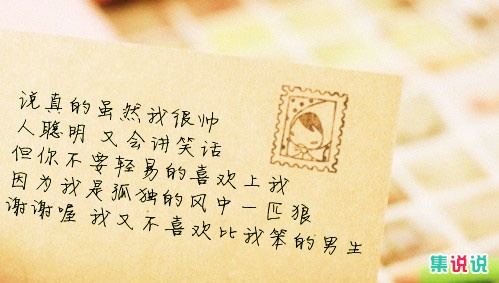 说真的虽然我很帅
人聪明 又会讲笑话
但你不要轻易的喜欢上我
因为我是孤独的风中一匹狼
谢谢喔 我又不喜欢比我笨的男生
集说说